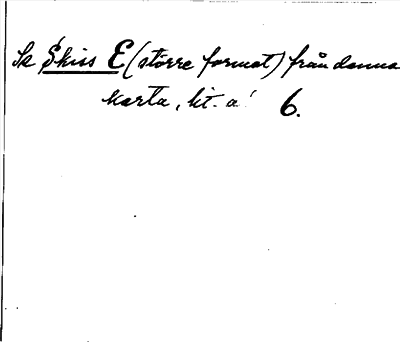 Se Skiss E (större format) från denna
karta, lit. a! 6.